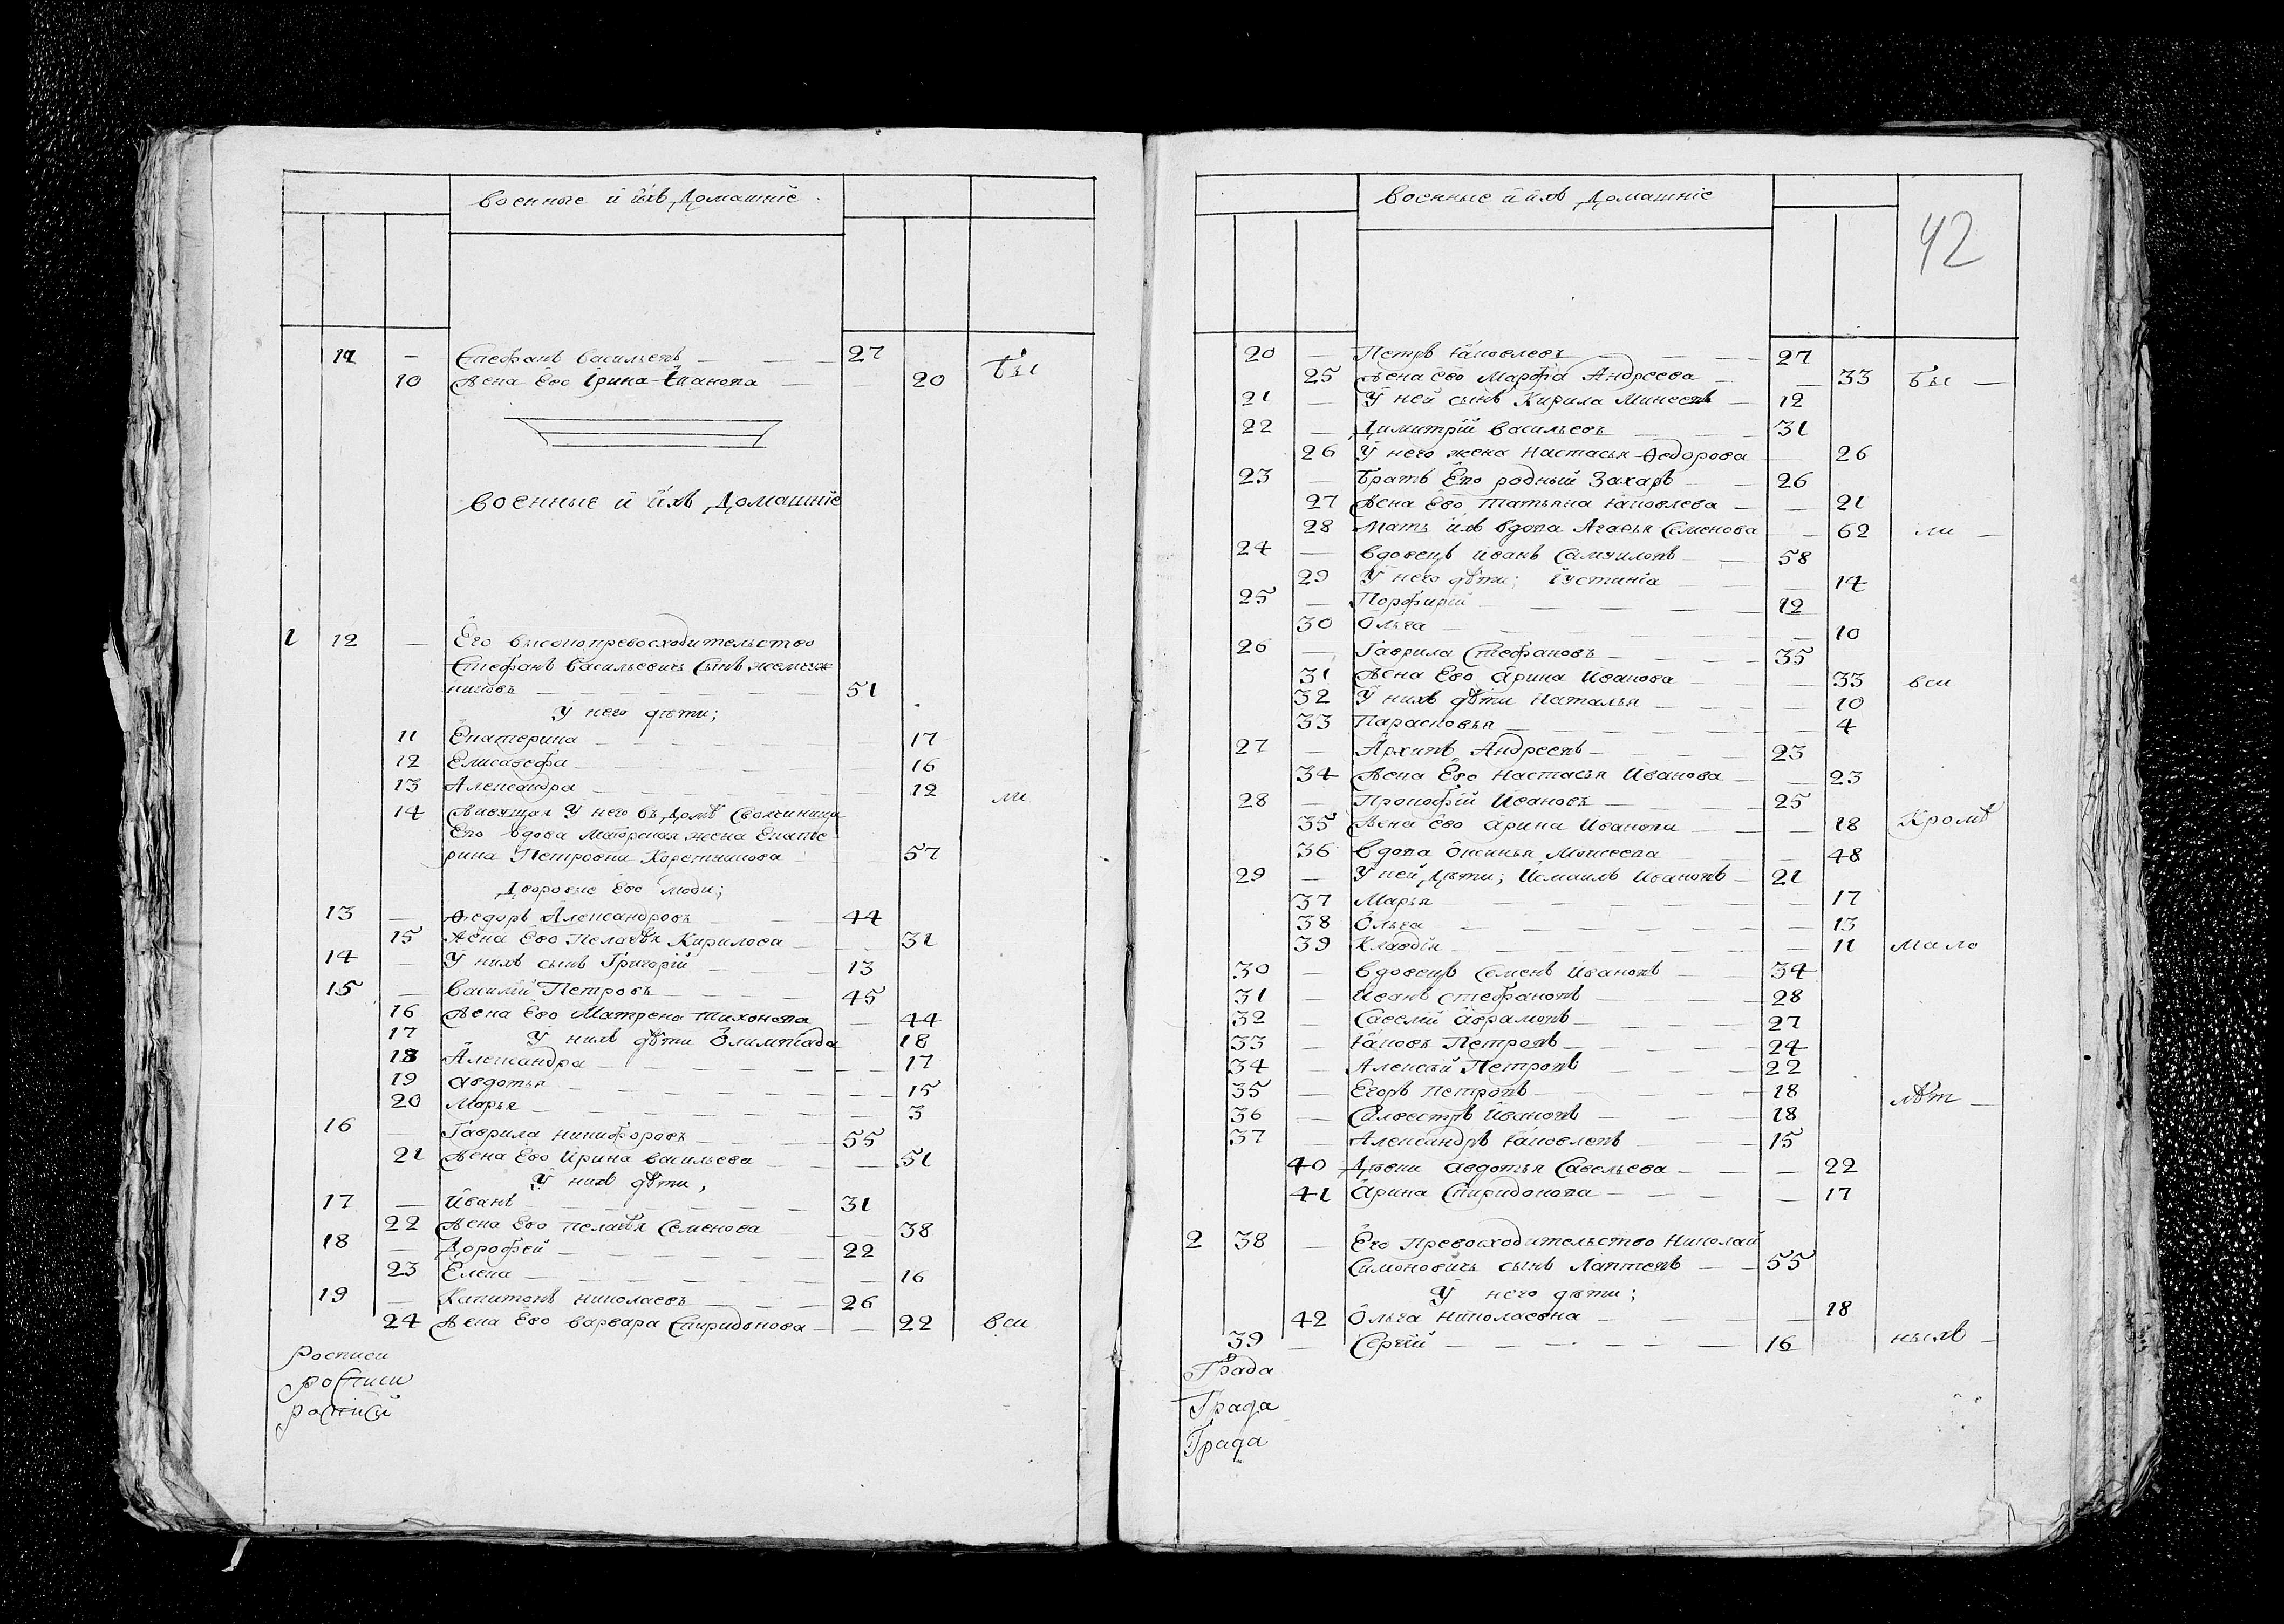 Военные и ихъ Домашніе
11 — Стефанъ Васильевъ — — 27 бы
10 Жена Ево Ірина Иванова — 20
Военные и ихъ Домашніе
1 12 — Его высокопревосходительство
Стефанъ Васильевичь Сынъ
51
У него дѣти;
11 Екатерина — 17
12 Елисавефа — 16
13 Александра — 12 ли
14 Живущая У него въ Домѣ Своячиница
Ево вдова Маіорская жена Екате
рина Петровна — 57
Дворовые Ево люди;
13 — Ѳедоръ Александровъ — 44
15 Жена Ево Пелагѣя Кирилова — 31
14 — У нихъ сынъ Григорій — 13
15 — Василій Петровъ — 45
16 Жена Ево Матрена Тихонова — 44
17 У нихъ дѣти Олимпіада 18
18 Александра — 17
19 Авдотья — 15
20 Марья — 3
16 — Гаврила Никифоровъ — 55
21 Жена Ево Ирина Васильева — 51
У нихъ дѣти,
17 — Иванъ — 31
22 Жена Ево Пелагѣя Семенова — 38
18 — Дорофей — 22
23 Елена — 16
19 — Капитонъ Николаевъ — 26
24 Жена Ево Варвара Спиридонова — 22 вси
Росписи
росписи
росписи
Военные и ихъ Домашніе
42
20 — Петръ Яковлевъ — 27
25 Жена ево Марфа Андреева — 33 бы —
21 — У ней сынъ Кирила Минеевъ — 12
22 — Димитрій Васильевъ — 31
26 У него жена Настасья Ѳедорова 26
23 — Братъ Ево родный Захаръ — 26
27 Жена Ево Татьяна Яковлева — 21
28 Мать ихъ вдова Агафья Семенова — 62 ли —
24 — Вдовецъ Иванъ Самуиловъ — 58
29 У него дѣти; Іустинія — 14
25 — Порфирій — 12
30 Ольга — 10
26 — Гаврила Стефановъ — 35
31 Жена Ево Арина Иванова — 33 вси
32 У нихъ дѣти Наталья — 10
33 Парасковья — 4
27 — Архипъ Андреевъ — 23
34 Жена Ево Настасья Иванова — 23
28 — Прокофій Ивановъ — 25
35 Жена Ево Арина Иванова — 18 Кромѣ
36 Вдова Моисеева 48
29 — У ней Дѣти; Исмаилъ Ивановъ — 21
37 Марья — 17
38 Ольга — 13
39 Клавдія — 11 мало
30 — Вдовецъ Семенъ Ивановъ — 34
31 — Иванъ Стефановъ — 28
32 — Савелій Аврамовъ — 27
33 — Яковъ Петровъ — 24
34 — Алексѣй Петровъ — 22
35 — Егоръ Петровъ — 18 лѣт —
36 — Силвестръ Ивановъ — 18
37 — Александръ Яковлевъ — 15
40 Дѣвки Авдотья Савельева — 22
41 Арина Спиридонова — 17
2 38 — Его Превосходительство Николай
Симоновичь сынъ Лаптевъ — 55
У него дѣти;
42 Ольга Николаевна — 18
39 — Сергій — 16 ныхъ —
Града
Града
Града